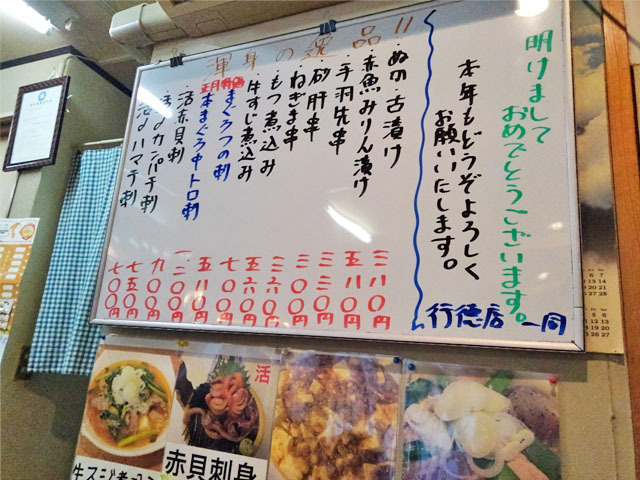 明けまして
おめでとうございます。
本年もどうぞよろしく
お願いいたします。
行徳店一同
渾身の逸品!!
・ぬの古漬け 三八〇円
・赤魚みりん漬け 五八〇円
・手羽先串 三三〇円
・砂肝串 三〇〇円
・ねぎま串 三六〇円
・もつ煮込み
・牛すじ煮込み 五六〇円
正月 まぐろつの刺 七〇〇円
本まぐろ中トロ刺 一二〇〇円
・活赤貝刺 九〇〇円
カンパチ刺 七五〇円
活〆ハマチ刺 七〇〇円
活
赤貝刺身
牛スジ煮込